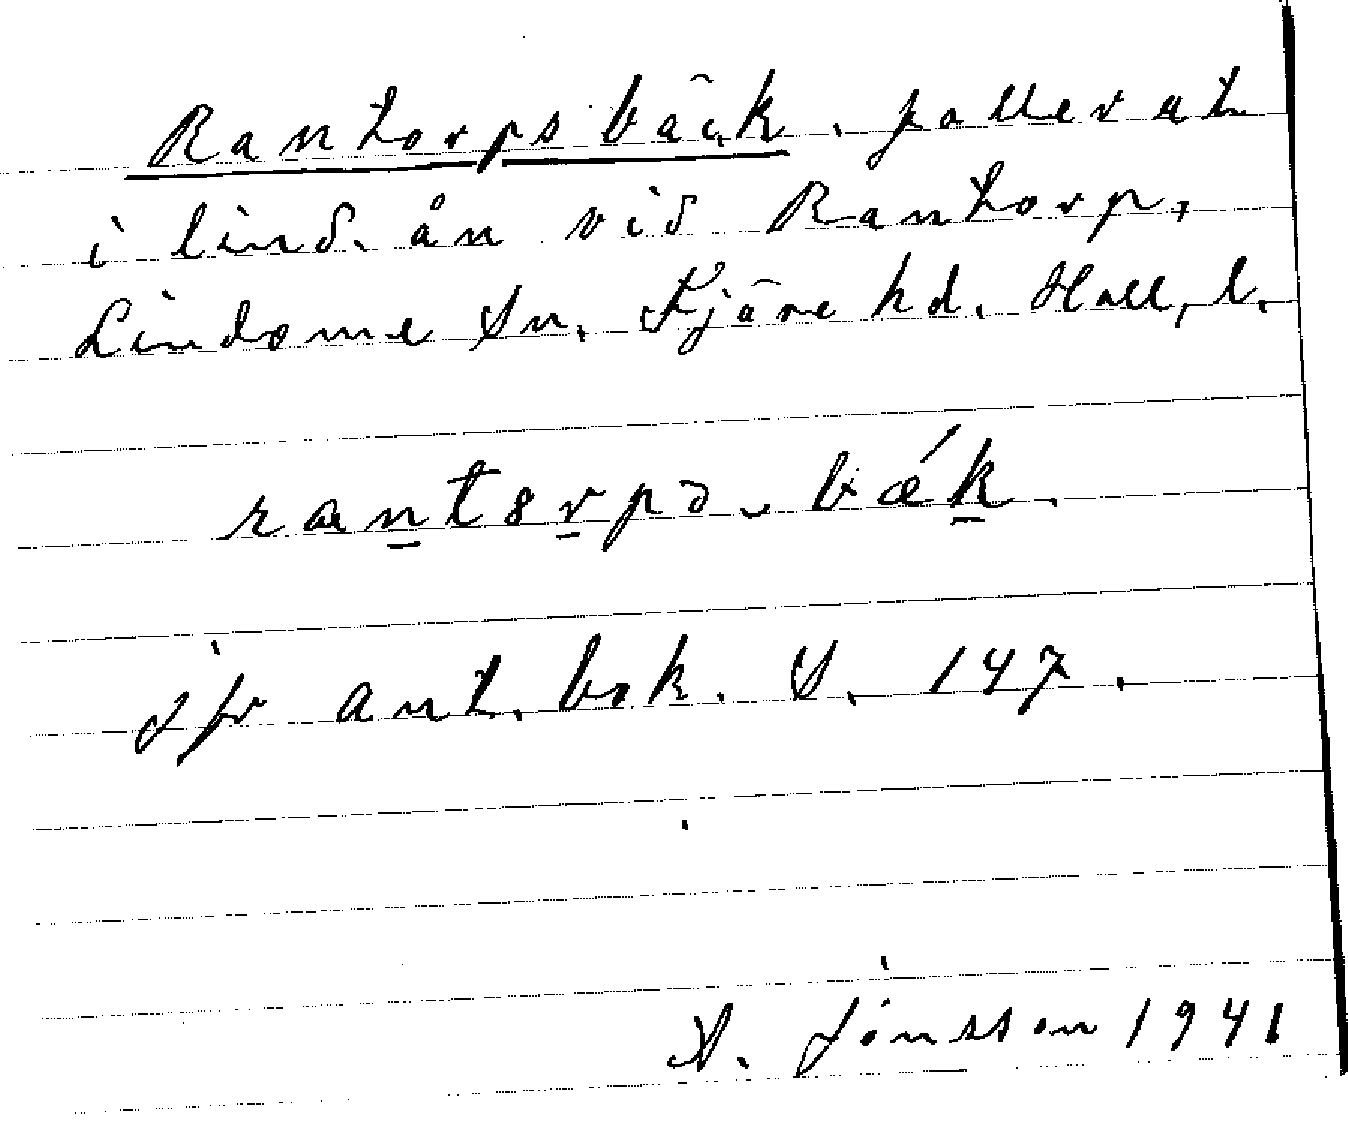 Rantorpsbäck. falle​r ut
i lind. ån vid Rantorp,
Lindome Sn. Fjäre hd. Hall, l.
rantorpə‿bǽk.
jfr ant. bok. S. 147.
A. Jónsson 1941